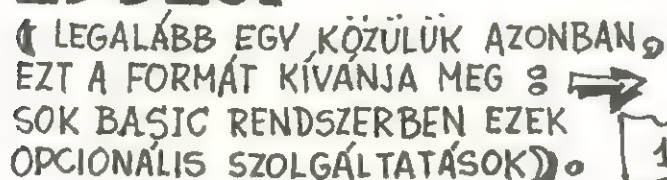 (LEGALÁBB EGY KÖZÜLÜK AZONBAN,
EZT A FORMÁT KÍVÁNJA MEG :
SOK BASIC RENDSZERBEN EZEK
OPCIONÁLIS SZOLGÁLTATÁSOK).